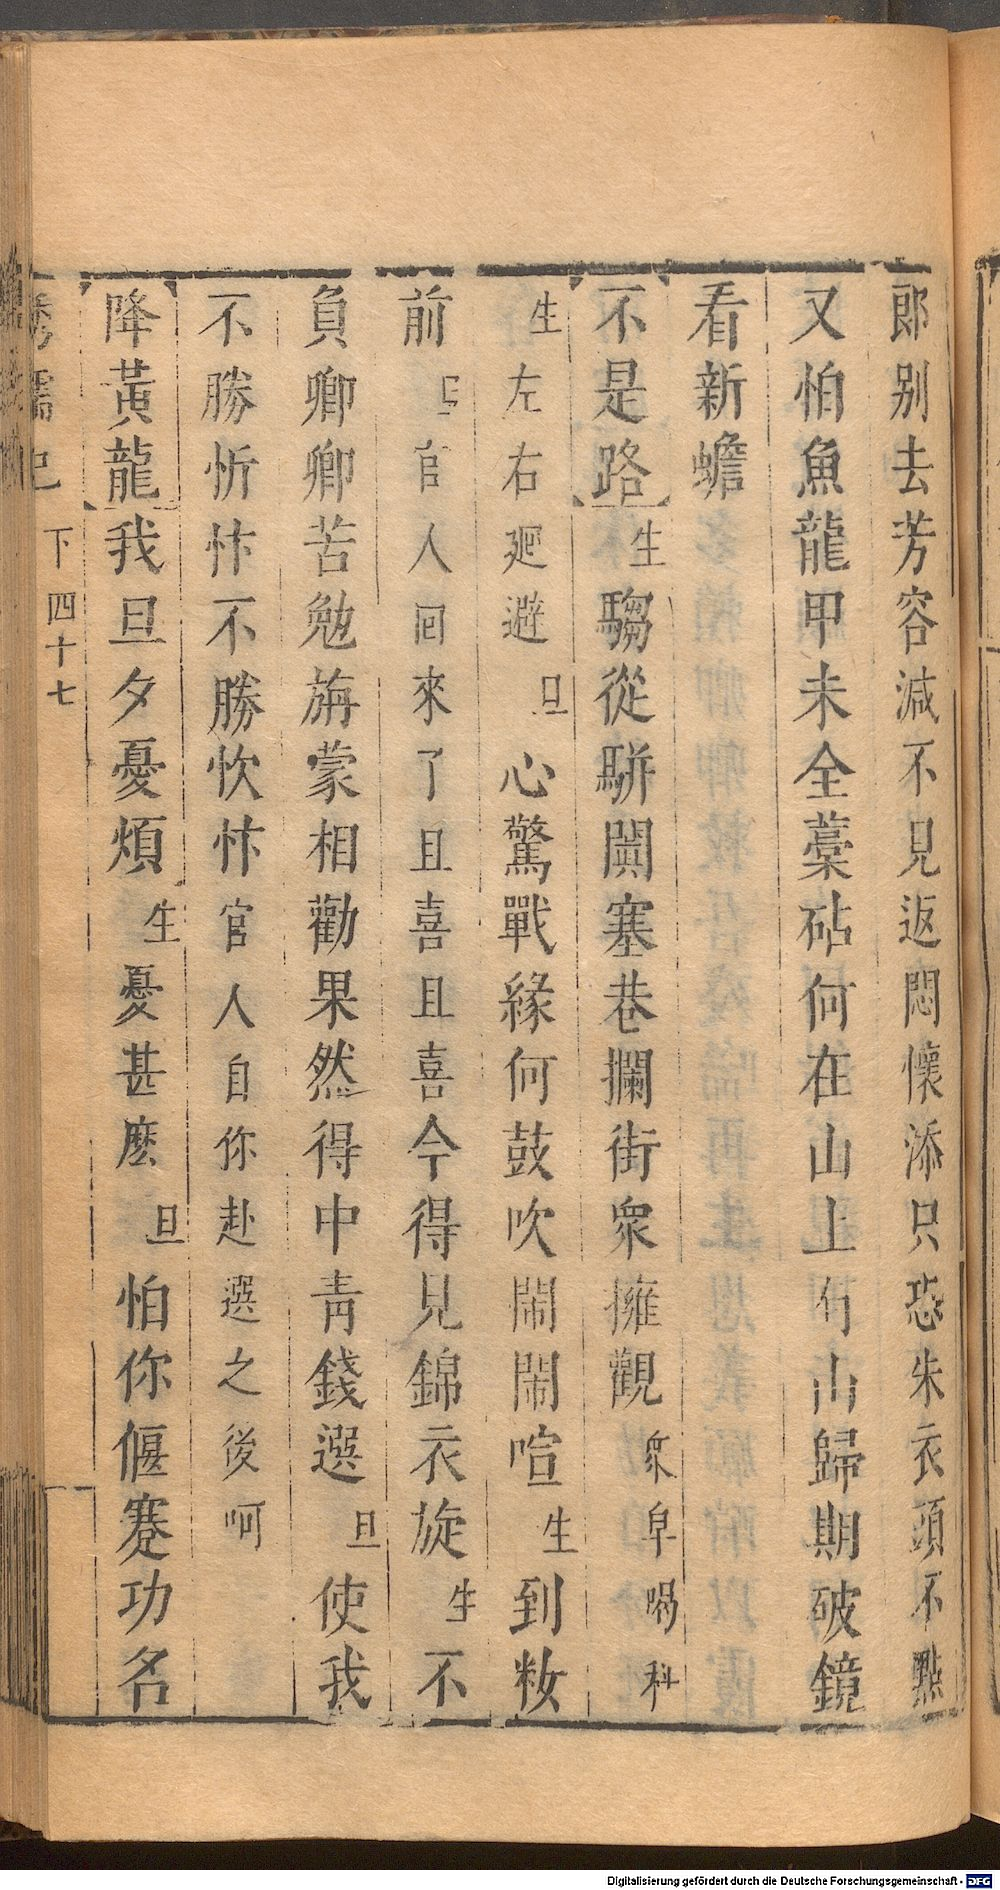 郎别去芳容減不見返悶懷添只恐朱衣頭不點
又怕魚龍甲未全藁砧何在山上山歸期破鏡
看新蟾
不是路生騶從駢闐塞巷攔街衆擁觀衆皁喝科
生左右廻避旦心驚戰緣何鼓吹鬧鬧喧生到粧
前官人回來了且喜且喜今得見錦衣旋生不
負卿卿苦勉旃蒙相勸果然得中靑錢選旦使我
不勝忻忭不勝忺忭官人自你赴選之後呵
降黃龍我旦夕憂煩生憂甚麽旦怕你偃蹇功名
繡襦记 下四十七
Digitalisierung gefördert durch die Deutsche Forschungsgemeinschaft - DFG